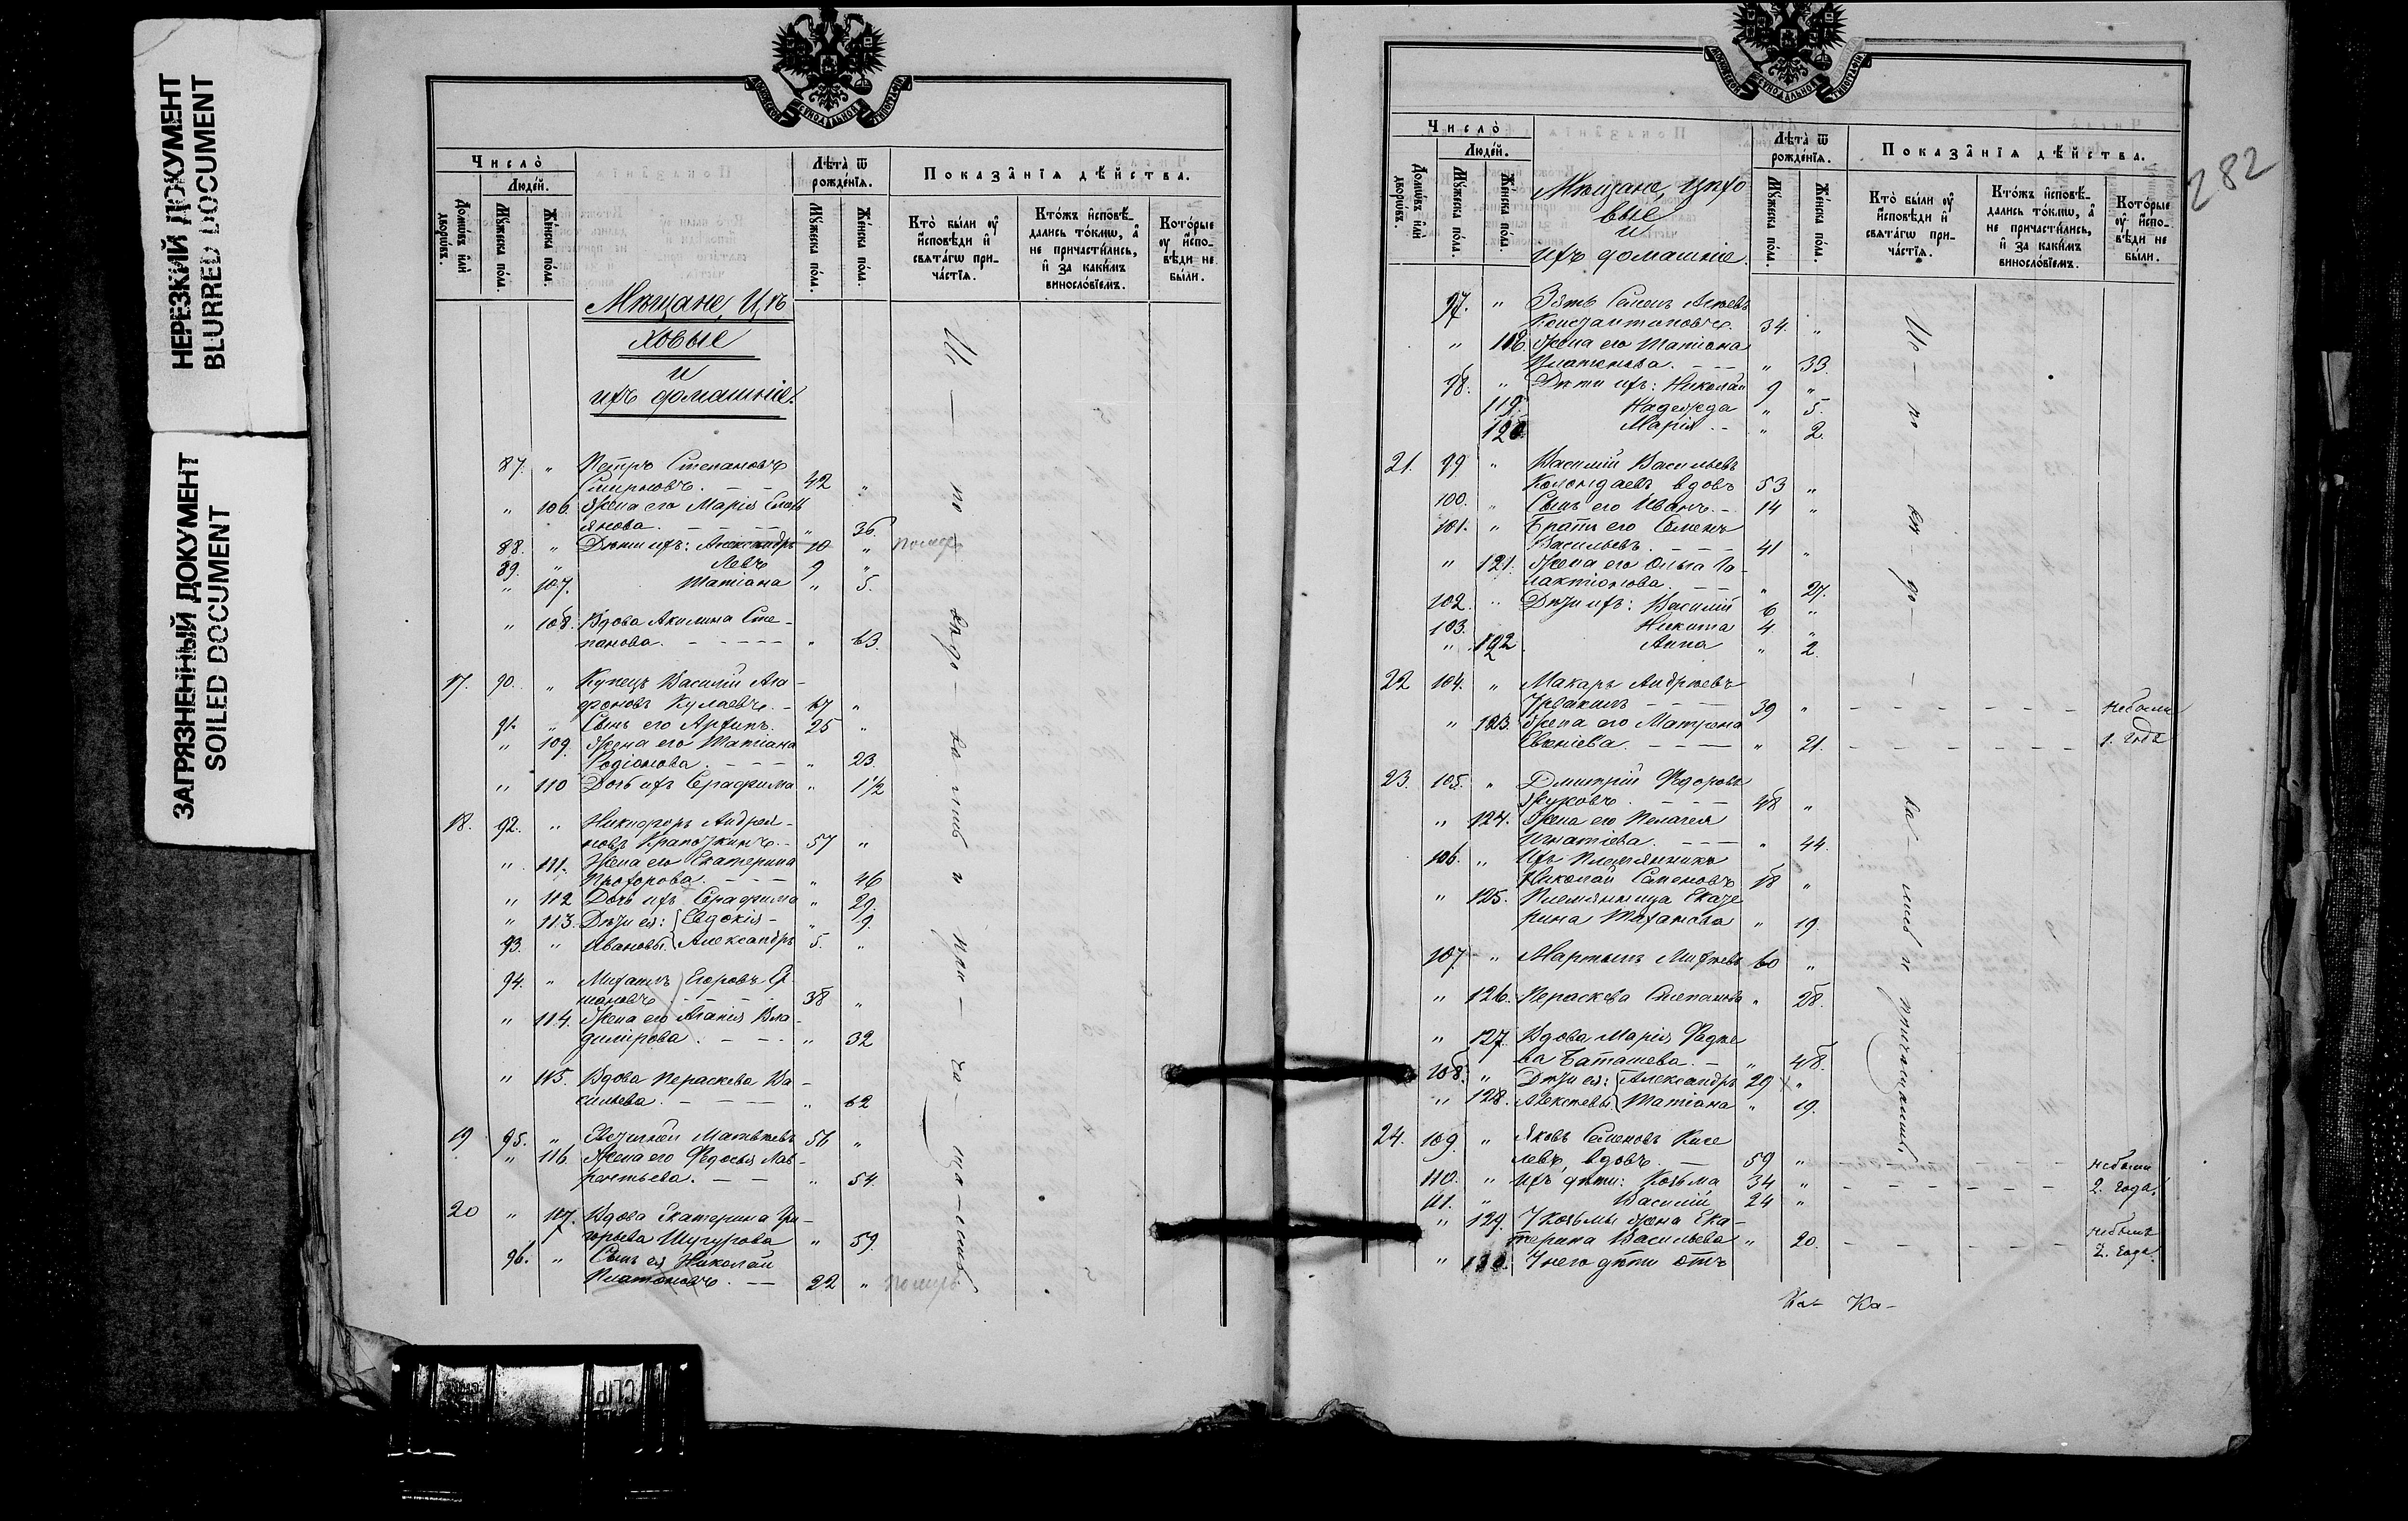 НЕРЕЗКИЙ ДОКУМЕНТ
BLURRED DOCUMENT
ЗАГРЯЗНЕННЫЙ ДОКУМЕНТ
SOILED DOCUMENT
Число̀
Людей.
Домѡ́въ и҆лѝ дворѡ́въ.
Мꙋ́жеска по́ла.
Же́нска по́ла.
Лѣта̀ ѿ рожде́нїѧ.
Мꙋ́жеска по́ла.
Же́нска по́ла.
Показа̂нїѧ дѣ́йства.
Кто̀ бы́ли ᲂу҆
и҆сповѣди и҆
свѧта́гѡ при-
ча́стїѧ.
Кто́жъ и҆сповѣ́-
дались то́кмѡ, а҆
не причасти́лись,
и҆ за каки́мъ
винословїемъ.
Кото́рые
ᲂу҆ и҆спо-
вѣди не
бы́ли.
Мѣщане, Цѣ
ховые
и
ихъ домашніе.
87. " Петръ Степановъ
Смирновъ. - - 42 "
" 106. Жена его Марія Емель
янова. - - - - " 36.
88. " Дѣти ихъ: Александръ 10 " помер
89. " Левъ 9 "
" 107. Татіана " 5.
" 108. Вдова Акилина Сте-
панова. - - - - " 63.
17. 90. " Купецъ Василій Ага-
фоновъ Кулаевъ. - 67 "
91. " Сынъ его Архипъ. 25 "
" 109. Жена его Татіана
Родіонова. - - - " 23.
" 110 Дочь ихъ Серафима " 1 1/2
18. 92. " Никифоръ Андрея-
новъ Крапоткинъ. - 57 "
" 111. Жена его Екатерина
Прохорова. - - - " 46
" 112 Дочь ихъ Серафима " 29.
" 113. Дѣти ея: Евдокія - " 9.
93. " Ивановы. Александръ 5. "
94. " Михаилъ Егоровъ
38 "
" 114. Жена его Агапія Вла-
димірова. - - - " 32
" 115. Вдова Параскева Ва-
сильева. - - - - " 62
19 95. " Евсигней Матвѣевъ 56 "
" 116. Жена его Ѳедосья Лав-
рентьева. - - " 54.
20 " 117. Вдова Екатерина Гри-
горьева Шугурова " 59.
96. " Сынъ ея Николай
Платоновъ. - - 22 " померъ
Ис — по — вѣдо — ва-лись и при — ча — ща-лись
282
Число̀
Людей.
Домѡ́въ и҆лѝ дворѡ́въ.
Мꙋ́жеска по́ла.
Же́нска по́ла.
Мѣщане, цѣхо
вые
и
ихъ домашніе.
Лѣта̀ ѿ
рожде́нїѧ.
Мꙋ́жеска по́ла.
Же́нска по́ла.
Показа̂нїѧ дѣ́йства.
Кто̀ бы́ли ᲂу҆
и҆сповѣди и҆
свѧта́гѡ при-
ча́стїѧ.
Кто́жъ и҆сповѣ́-
дались то́кмѡ, а҆
не причасти́лись,
и҆ за каки́мъ
винословїемъ.
Кото́рые
ᲂу҆ и҆спо-
вѣди не
бы́ли.
97. " Зять Семенъ Агѣевъ
Константиновъ. 34. "
" 118. Жена его Татіана
Платонова. - - - " 33.
98. " Дѣти ихъ: Николай 9 "
119. Надежда " 5.
120. Марія. - " 2.
21. 99 " Василій Васильевъ
Колондаевъ вдовъ 53 "
100. " Сынъ его Иванъ. - 14 "
101. " Братъ его Семенъ
Васильевъ. - - - 41 "
" 121. Жена его Ольга Га-
лактіонова. - - - " 27.
102. " Дѣти ихъ: Василій 6 "
103. Никита 4 "
" 122. Анна " 2.
22 104. " Макаръ Андреевъ
39 " - - - - - не были
" 123. Жена его Матрона
Евгеніева. - - - " 21. - - - - - 1. года
23. 105. " Дмитрій Ѳедоровъ
Жуковъ. - - - 48 "
" 124. Жена его Пелагея
Игнатіева. - - - " 44.
106. " Ихъ племянникъ
Николай Семеновъ 18 "
" 125. Племянница Екате
рина " 19.
107. " Мартынъ Михѣевъ 60 "
" 126. Параскева Степанова " 28.
" 127. Вдова Марія Фадѣе
ва Баташева. - " 48.
108. " Дѣти ея: Александръ 29 "
" 128. Алексѣевы. Татіана " 19.
24. 109 " Яковъ Семеновъ Кисе
левъ, вдовъ. - 59 " - - - - - не были
110. " Ихъ дѣти: Козьма 34 " - - - - - 2. года.
111. " Василій 24 "
" 129. У Козьмы жена Ека-
терина Васильева " 20. - - - - - не былъ 2. года.
" 130. У него дѣти отъ
Ис — по — вѣ — до — ва — лись и причащались.
Ка- Ка-